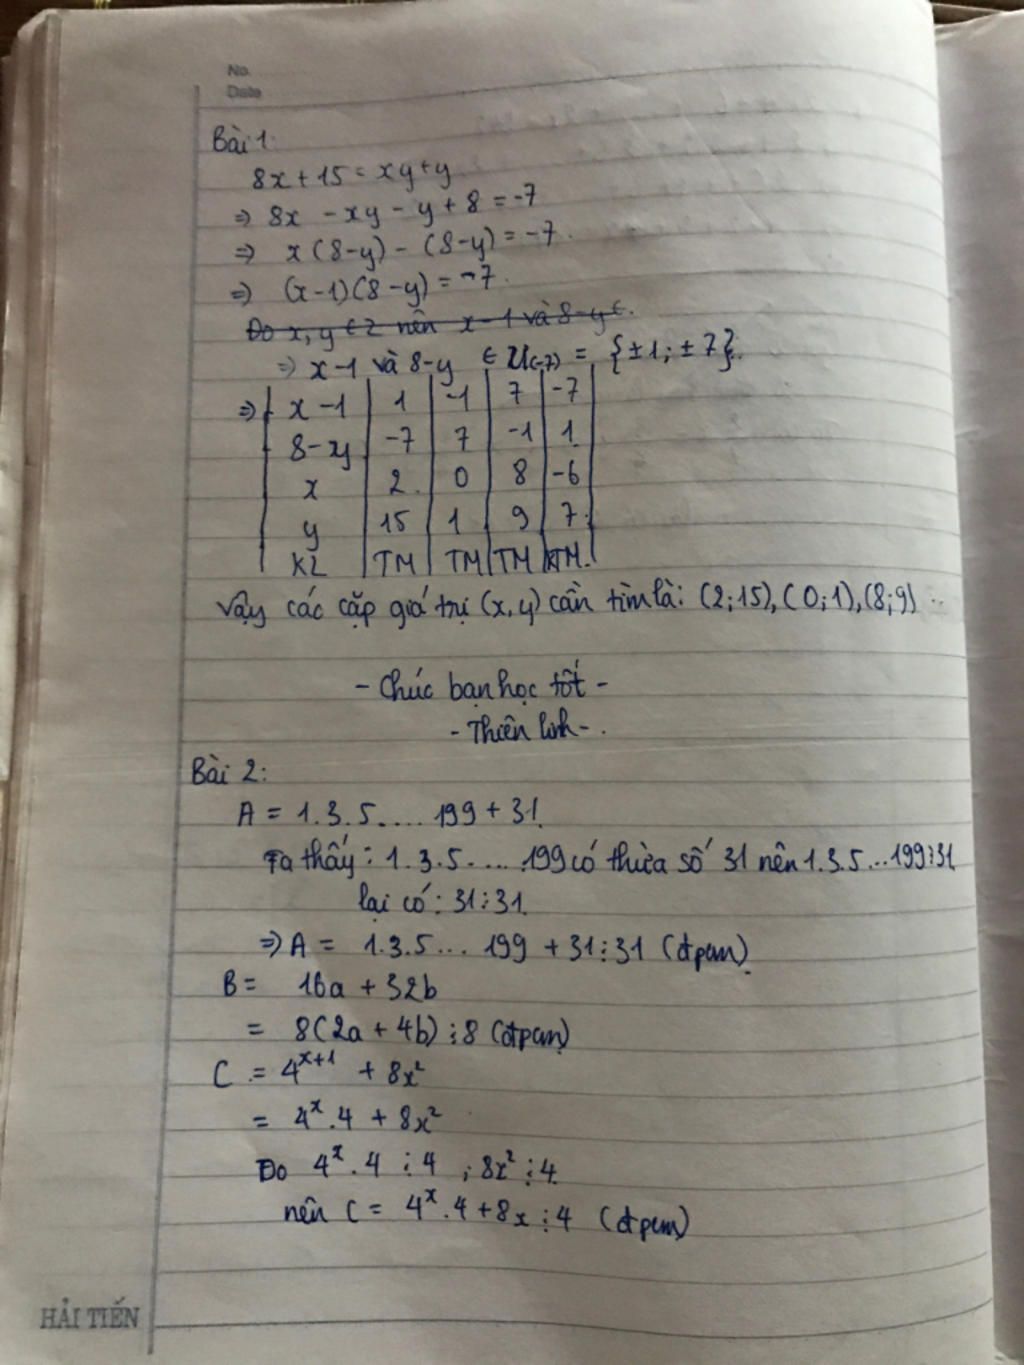 No.
Date
Bài 1:
8x + 15 = xy + y
⇒ 8x - xy - y + 8 = -7
⇒ x(8-y) - (8-y) = -7.
⇒ (x-1)(8-y) = -7.
Do x, y ∈ Z nên x-1 và 8-y ∈.
⇒ x-1 và 8-y ∈ Ư(-7) = {±1; ±7}.
⇒ | x-1 | 1 | -1 | 7 | -7 |
8-y | -7 | 7 | -1 | 1
x | 2 | 0 | 8 | -6
y | 15 | 1 | 9 | 7
KL | TM | TM | TM | KTM.
Vậy các cặp giá trị (x,y) cần tìm là: (2;15), (0;1), (8;9)
- Chúc bạn học tốt -
- Thiên linh -.
Bài 2:
A = 1.3.5.... 199 + 31.
Ta thấy: 1.3.5.... 199 có thừa số 31 nên 1.3.5...199 ⋮ 31
lại có: 31 ⋮ 31.
⇒ A = 1.3.5... 199 + 31 ⋮ 31 (đpcm).
B = 16a + 32b
= 8(2a + 4b) ⋮ 8 (đpcm)
C = 4^{x+1} + 8x²
= 4^x.4 + 8x²
Do 4^x.4 ⋮ 4 ; 8x² ⋮ 4.
nên C = 4^x.4 + 8x ⋮ 4 (đpcm)
HẢI TIẾN